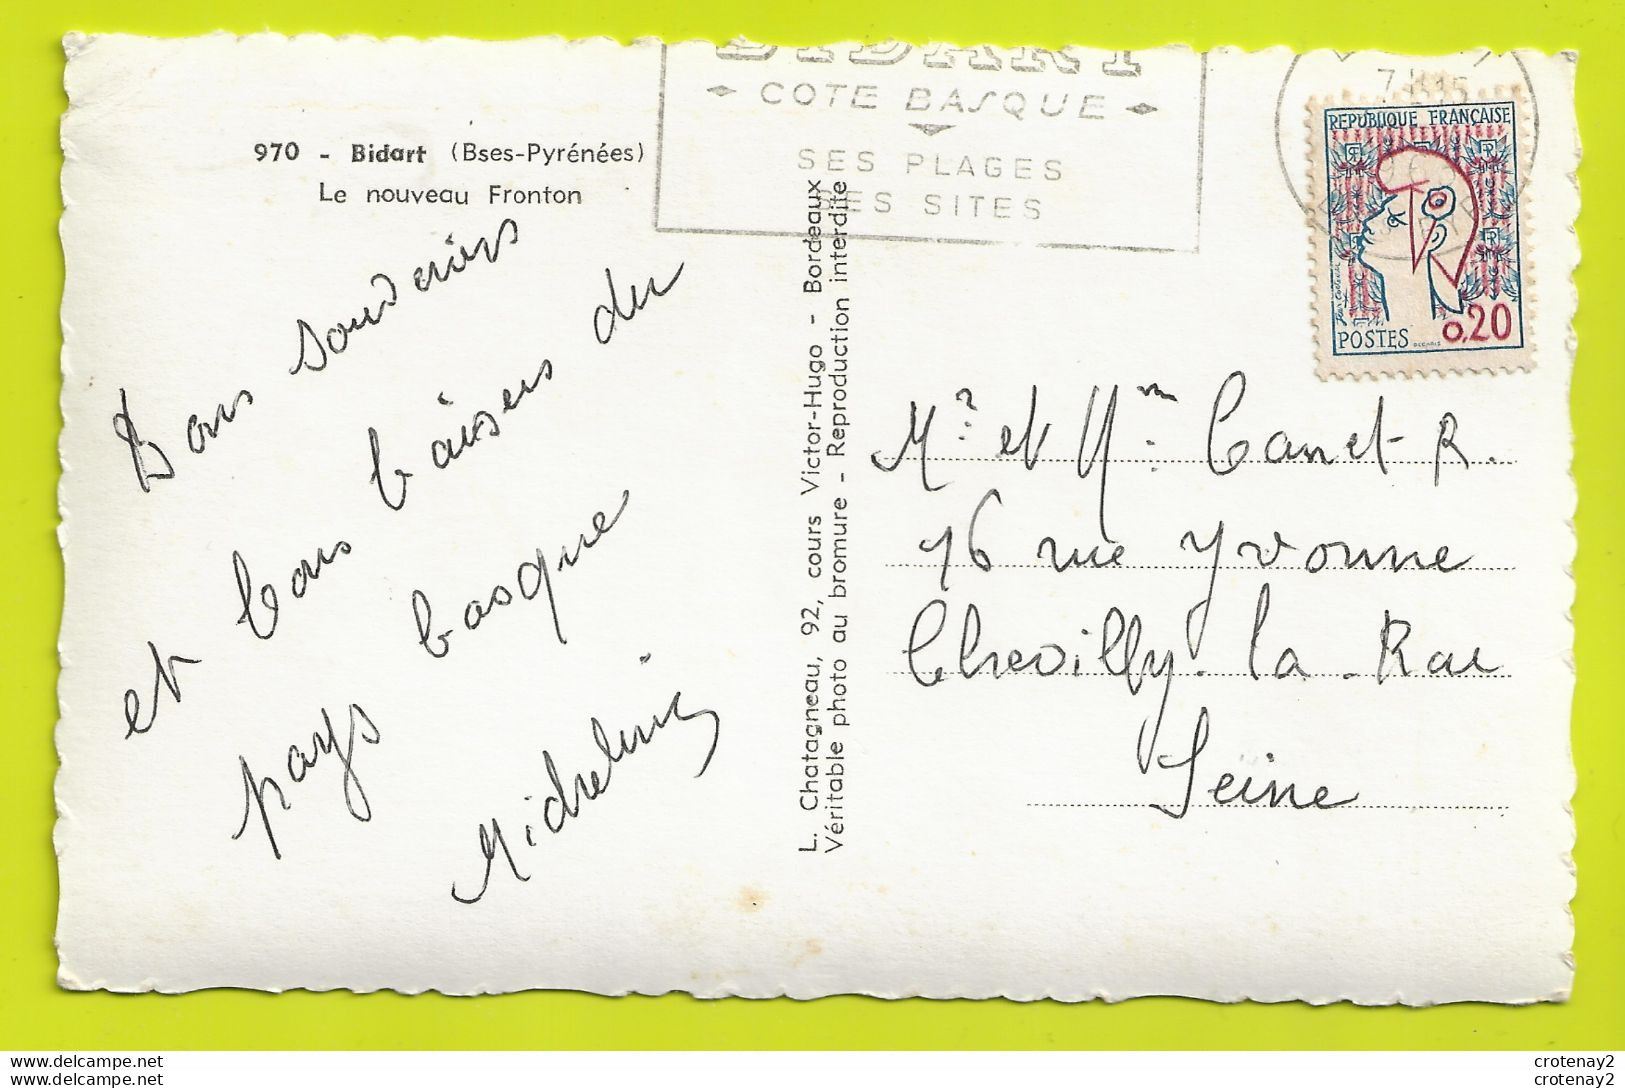 BIDART
COTE BASQUE
SES PLAGES
SES SITES
970 - Bidart (Bses-Pyrénées)
Le nouveau Fronton
REPUBLIQUE FRANÇAISE
POSTES 0,20
Bons souvenirs
et bons baisers du
pays basque
Micheline
L. Chatagneau, 92, cours Victor-Hugo - Bordeaux
Véritable photo au bromure - Reproduction interdite
Mr et Mme Canet R.
16 rue Yvonne
Chevilly-la-Rue
Seine
www.delcampe.net
www.delcampe.net
crotenay2
crotenay2